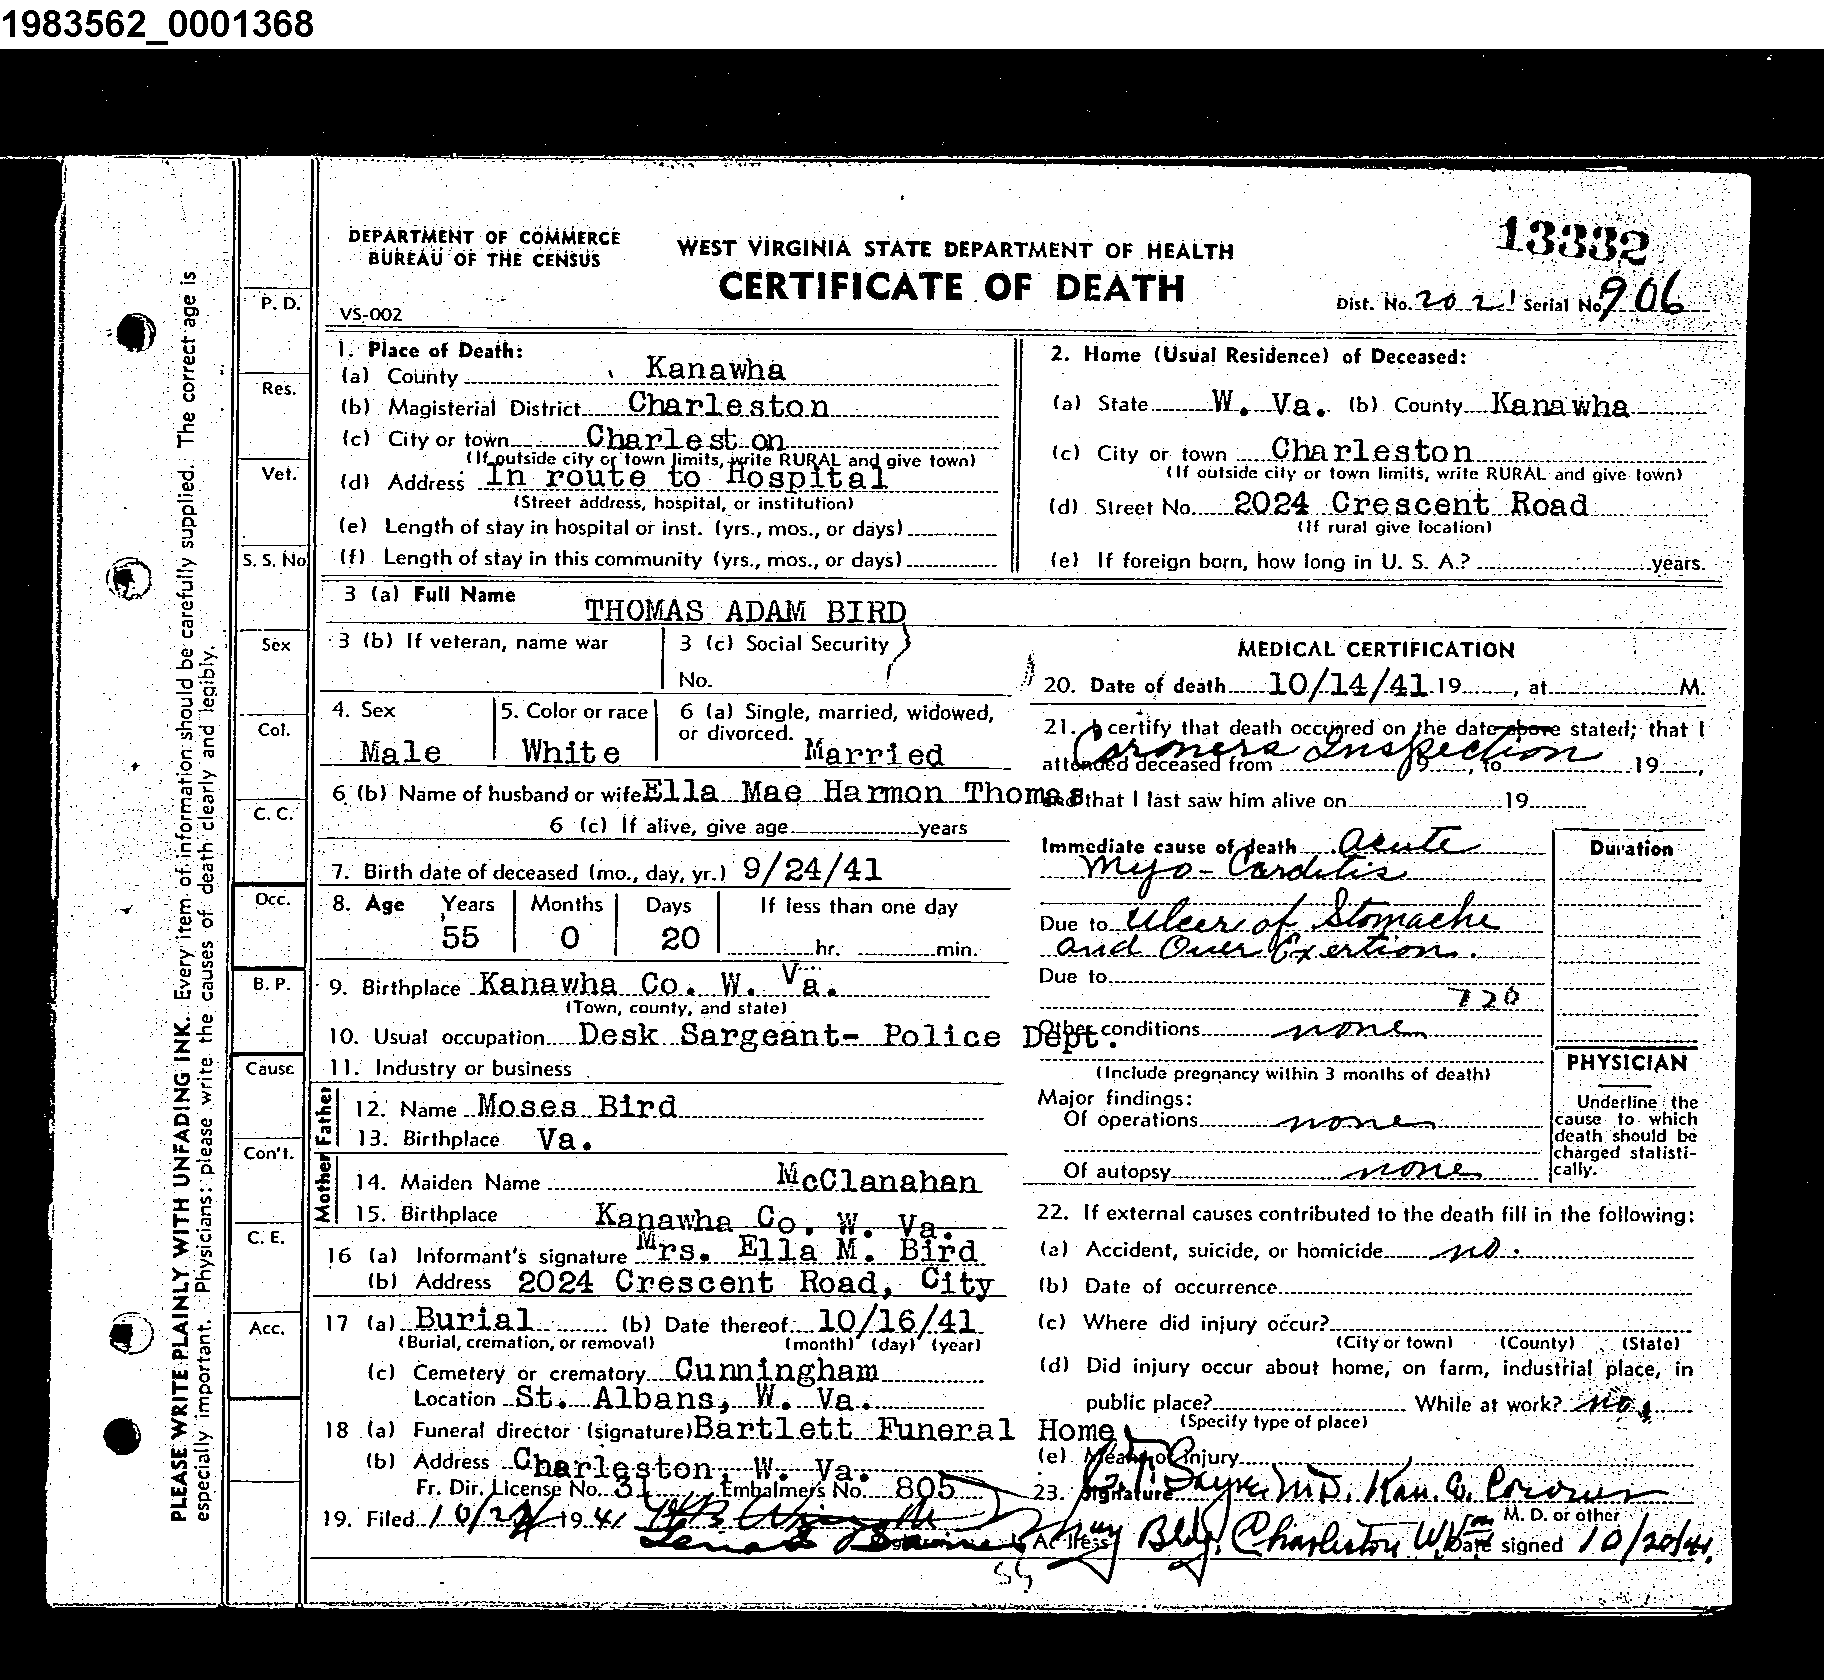 1983562_0001368
13332
DEPARTMENT OF COMMERCE
BUREAU OF THE CENSUS
WEST VIRGINIA STATE DEPARTMENT OF HEALTH
CERTIFICATE OF DEATH
VS-002
Dist. No. 2021 Serial No. 906
PLEASE WRITE PLAINLY WITH UNFADING INK. Every item of information should be carefully supplied. The correct age is
especially important. Physicians: please write the causes of death clearly and legibly.
P. D.
Res.
Vet.
S. S. No
Sex
Col.
C. C.
Occ.
B. P.
Cause
Con't.
C. E.
Acc.
1. Place of Death:
(a) County Kanawha
(b) Magisterial District Charleston
(c) City or town Charleston
(If outside city or town limits, write RURAL and give town)
(d) Address In route to Hospital
(Street address, hospital, or institution)
(e) Length of stay in hospital or inst. (yrs., mos., or days)
(f) Length of stay in this community (yrs., mos., or days)
2. Home (Usual Residence) of Deceased:
(a) State W. Va. (b) County Kanawha
(c) City or town Charleston
(If outside city or town limits, write RURAL and give town)
(d) Street No. 2024 Crescent Road
(If rural give location)
(e) If foreign born, how long in U. S. A.? years.
3 (a) Full Name THOMAS ADAM BIRD
3 (b) If veteran, name war
3 (c) Social Security
No.
4. Sex Male
5. Color or race White
6 (a) Single, married, widowed,
or divorced. Married
6 (b) Name of husband or wife Ella Mae Harmon Thomas
6 (c) If alive, give age years
7. Birth date of deceased (mo., day, yr.) 9/24/41
8. Age Years Months Days If less than one day
55 0 20 hr. min.
9. Birthplace Kanawha Co. W. Va.
(Town, county, and state)
10. Usual occupation Desk Sargeant- Police Dept.
11. Industry or business
Father
12. Name Moses Bird
13. Birthplace Va.
Mother
14. Maiden Name McClanahan
15. Birthplace Kanawha Co. W. Va.
16 (a) Informant's signature Mrs. Ella M. Bird
(b) Address 2024 Crescent Road, City
17 (a) Burial (b) Date thereof 10/16/41
(Burial, cremation, or removal) (month) (day) (year)
(c) Cemetery or crematory Cunningham
Location St. Albans, W. Va.
18 (a) Funeral director (signature) Bartlett Funeral Home
(b) Address Charleston, W. Va.
Fr. Dir. License No. 31 Embalmers No. 805
19. Filed 10/2 1941
MEDICAL CERTIFICATION
20. Date of death 10/14/41 19 , at M.
21. I certify that death occurred on the date above stated; that I
Coroners Inspection
attended deceased from 19 , to 19 ,
and that I last saw him alive on 19
Immediate cause of death Acute
Myo-Carditis
Due to Ulcer of Stomache
and Over Exertion.
Due to
720
Other conditions none
(Include pregnancy within 3 months of death)
Major findings:
Of operations none
Of autopsy none
Duration
PHYSICIAN
Underline the
cause to which
death should be
charged statisti-
cally.
22. If external causes contributed to the death fill in the following:
(a) Accident, suicide, or homicide no.
(b) Date of occurrence
(c) Where did injury occur?
(City or town) (County) (State)
(d) Did injury occur about home, on farm, industrial place, in
public place? While at work? no
(Specify type of place)
(e) Means of injury
23. Signature M.D. Kan. Co. Coroner
M. D. or other
Address Bldg. Charleston W.Va Date signed 10/20/41.